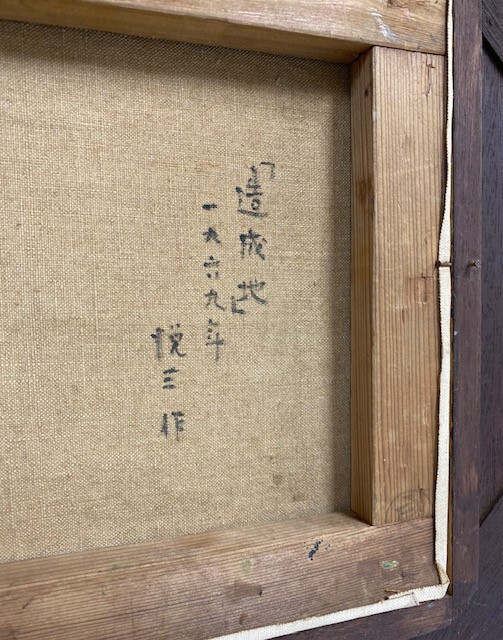 「造成地」
一九六九年
悦三作